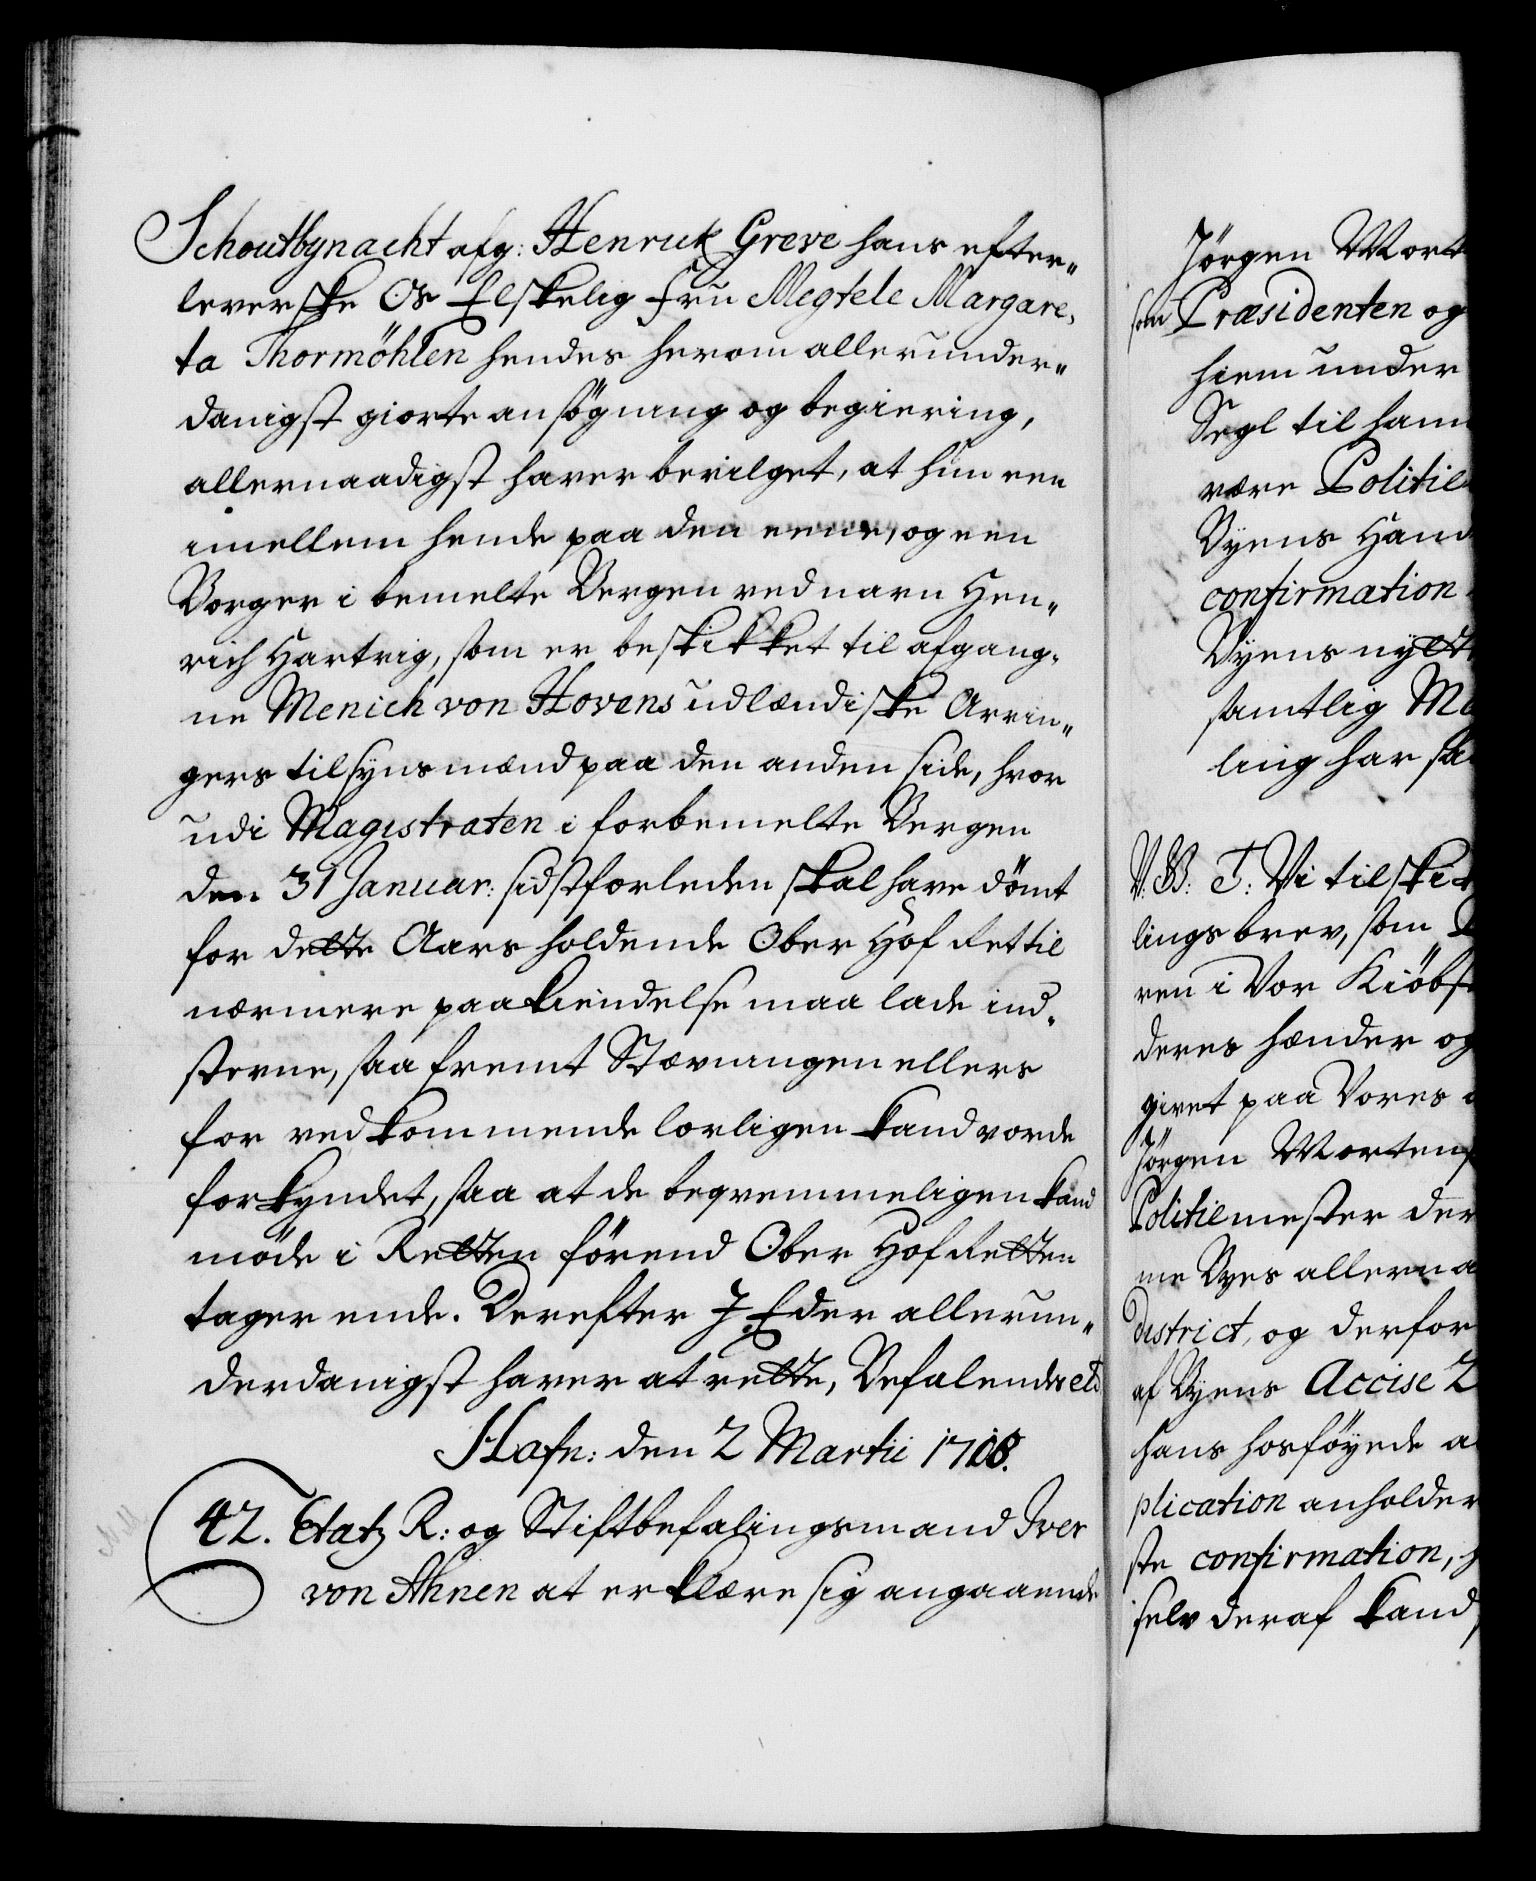 Schoutbynacht afg: Henrick Greve hans efter„
leverske Os Elskelig Fru Megtele Margare,
ta Thormöhlen hendes herom allerunder„
danigst giorte ansøgning og begiering,
allernaadigst haver bevilget, at hun een
imellem hende paa den eene, og een
Borger i bemelte Bergen ved navn Hen„
rich Hartvig, som er beskikket til afgang„
ne Menich von Hovens udlændiske Arvin„
gers tilsynsmænd paa den anden side, hvor
udi Magistraten i forbemelte Bergen
den 31 Januar: sidstforleden skal have dömt
for dette Aars holdende Ober Hof Ret til
nærmere paakiendelse maa lade ind„
stevne, saa fremt Stævningen ellers
for vedkommende lovligen kand vorde
forkyndet, saa at de beqvemmeligen kand
möde i Retten förend Ober Hof Retten
tager ende. Derefter I Eder allerun„
derdanigst haver at rette, Befalendes etc
Hafn: den 2 Martii 1708.
42. Etatz R: og Stiftbefalingsmand Iver
von Ahnen at erklære sig angaaende
Jörgen Mort
som Præsidenten og
hiem under
Segl til ham
være Politie
Byens Hand
confirmation
Byens nytt
samtlig Ma
ling har sa
V. G: T: Vi tilski
lings brev, som
ren i Vor Kiöbst
deres hænder og
givet paa Vores
Jörgen Mortens
Politiemester der
me Byes allerna
district, og derfor
af Byens Accise 2
hans hosföyede a
plication anholder
ste confirmation,
selv deraf kand